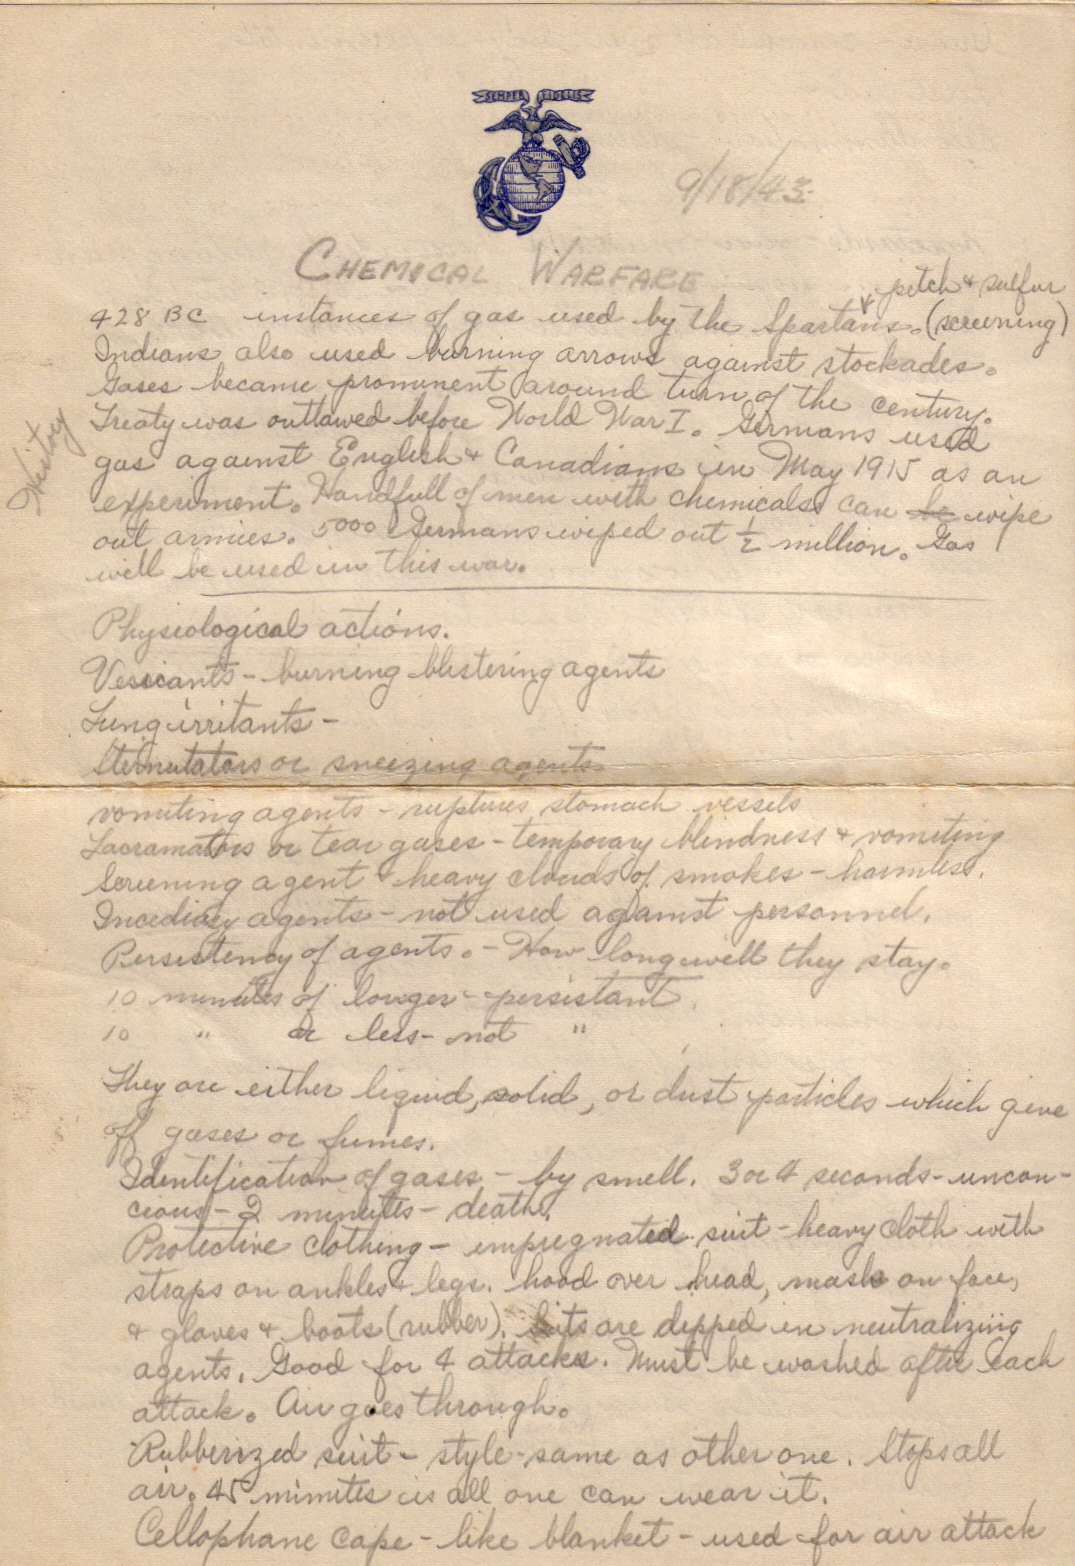 SEMPER FIDELIS
9/18/43
CHEMICAL WARFARE
pitch & sulfur
428 BC instances of gas used by the Spartans. (screening)
Indians also used burning arrows against stockades.
Gases became prominent around turn of the century.
Treaty was outlawed before World War I. Germans used
gas against English & Canadians in May 1915 as an
experiment. Handfull of men with chemicals can be wipe
out armies. 5000 Germans wiped out ½ million. Gas
will be used in this war.
History
Physiological actions.
Vesicants - burning blistering agents
Lung irritants -
Sternutators or sneezing agents
vomiting agents - ruptures stomach vessels
Lacramators or tear gases - temporary blindness & vomiting
Screening agent & heavy clouds of smokes - harmless.
Incediary agents - not used against personnel.
Persistency of agents. - How long will they stay.
10 minutes of longer - persistant.
10 " or less - not "
They are either liquid, solid, or dust particles which give
off gases or fumes.
Identification of gases - by smell. 3 or 4 seconds - uncon-
cious - 2 minutes - death.
Protective clothing - impregnated suit - heavy cloth with
straps on ankles & legs. hood over head, mask on face,
& gloves & boots (rubber). Suits are dipped in neutralizing
agents. Good for 4 attacks. Must be washed after each
attack. Air goes through.
Rubberized suit - style - same as other one. Stops all
air. 45 minutes is all one can wear it.
Cellophane cape - like blanket - used for air attack